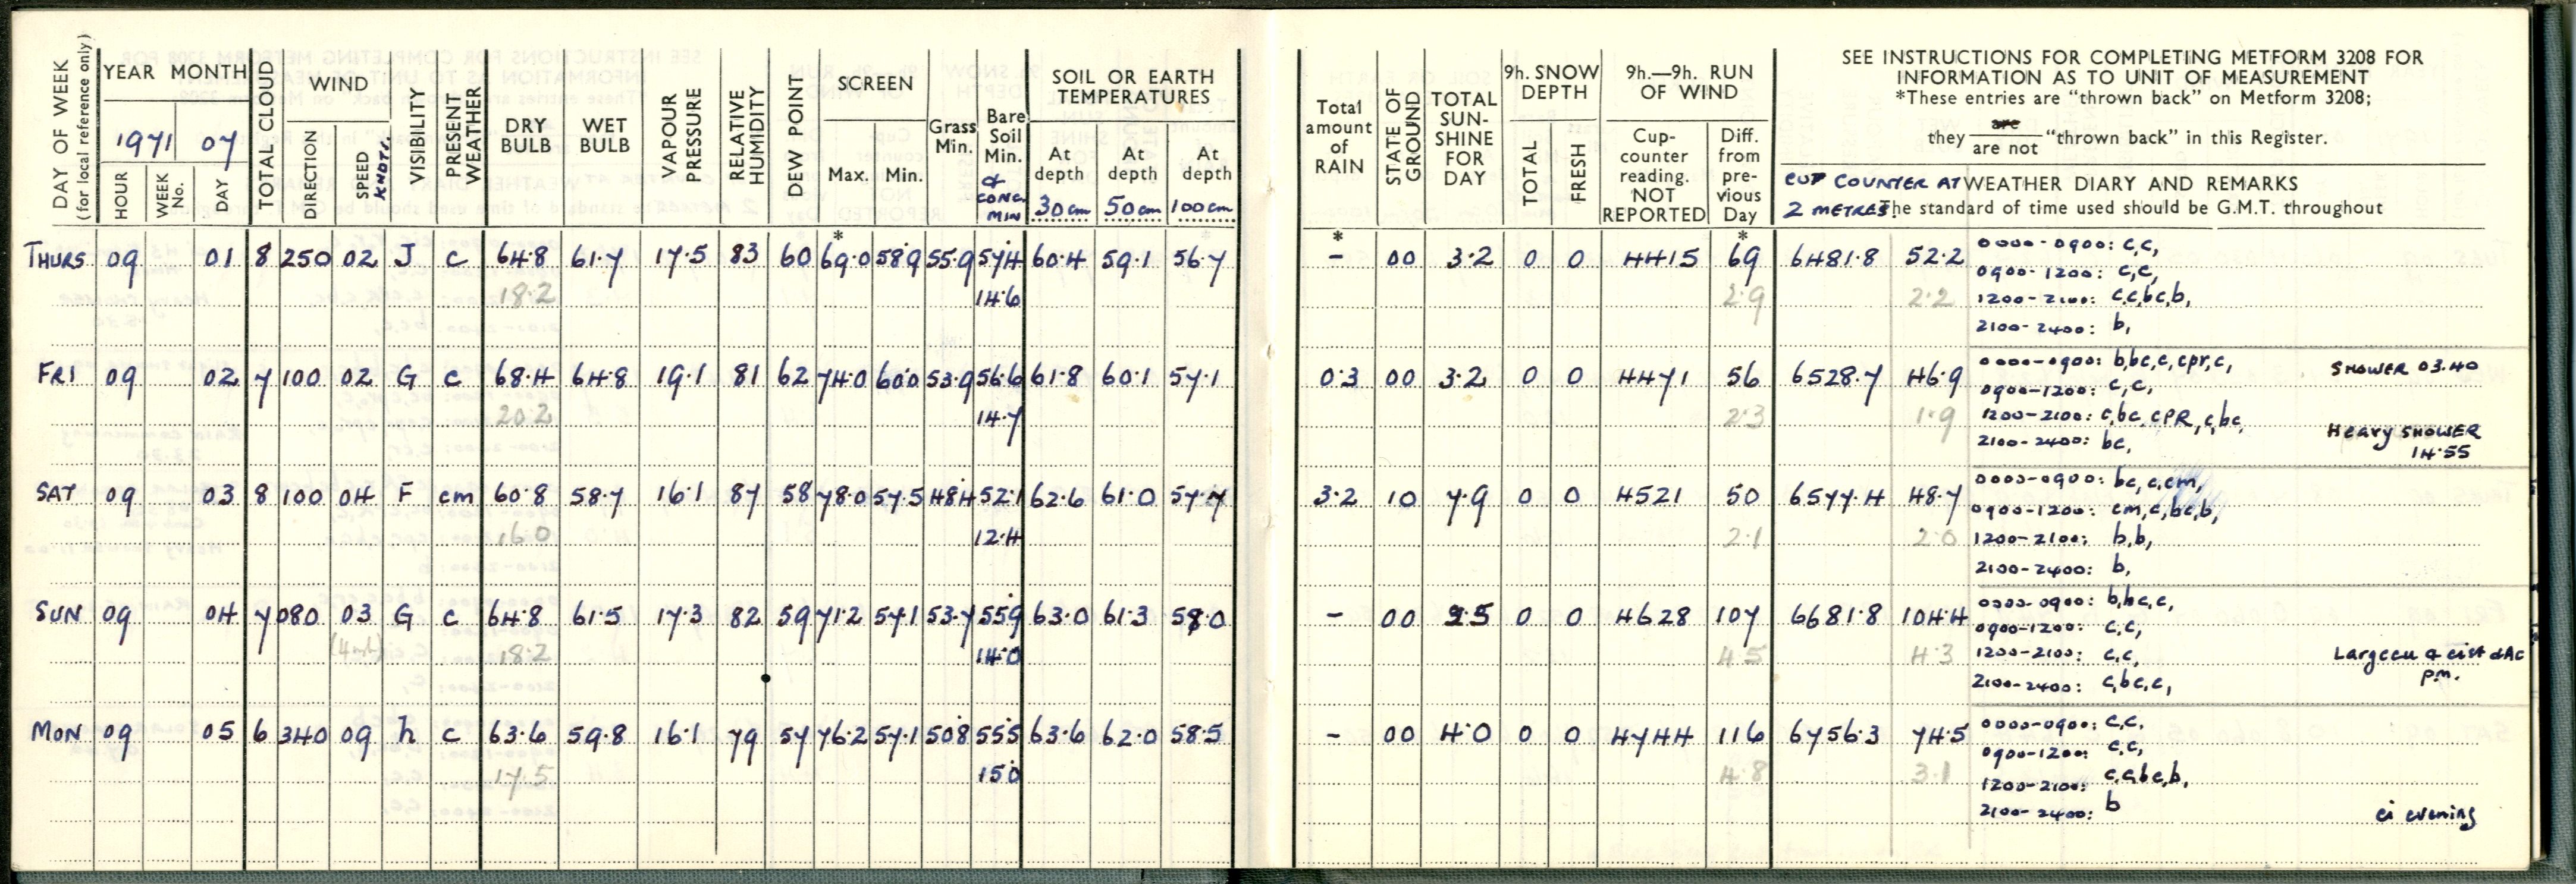 DAY OF WEEK
(for local reference only)
YEAR MONTH
1971 07
HOUR
WEEK No.
DAY
TOTAL CLOUD
WIND
DIRECTION
SPEED KNOTS.
VISIBILITY
PRESENT WEATHER
DRY BULB
WET BULB
VAPOUR PRESSURE
RELATIVE HUMIDITY
DEW POINT
SCREEN
Max. Min.
Grass Min.
Bare Soil Min.
& CONC. MIN
SOIL OR EARTH TEMPERATURES
At depth 30 cm
At depth 50 cm
At depth 100 cm
Total amount of RAIN
STATE OF GROUND
TOTAL SUN-SHINE FOR DAY
9h. SNOW DEPTH
TOTAL
FRESH
9h.—9h. RUN OF WIND
Cup-counter reading. NOT REPORTED
Diff. from pre-vious Day
SEE INSTRUCTIONS FOR COMPLETING METFORM 3208 FOR
INFORMATION AS TO UNIT OF MEASUREMENT
*These entries are "thrown back" on Metform 3208;
they are / are not "thrown back" in this Register.
CUP COUNTER AT 2 METRES
WEATHER DIARY AND REMARKS
The standard of time used should be G.M.T. throughout
* * *
THURS 09 01 8 250 02 J c 64.8 61.7 17.5 83 60 69.0 58.9 55.9 57.4 60.4 59.1 56.7 - 00 3.2 0 0 4415 69 6481.8 52.2 0000-0900: c,c,
0900-1200: c,c,
18.2 14.6 2.9 2.2 1200-2100: c,c,bc,b,
2100-2400: b,
FRI 09 02 7 100 02 G c 68.4 64.8 19.1 81 62 74.0 60.0 53.9 56.6 61.8 60.1 57.1 0.3 00 3.2 0 0 4471 56 6528.7 46.9 0000-0900: b,bc,c,cpr,c, SHOWER 03.40
0900-1200: c,c,
20.2 14.7 2.3 1.9 1200-2100: c,bc,cPR,c,bc,
2100-2400: bc, Heavy SHOWER 14.55
SAT 09 03 8 100 04 F cm 60.8 58.7 16.1 87 58 78.0 57.5 48.4 52.1 62.6 61.0 57.7 3.2 10 7.9 0 0 4521 50 6577.4 48.7 0000-0900: bc,c,cm,
0900-1200: cm,c,bc,b,
16.0 12.4 2.1 2.0 1200-2100: b,b,
2100-2400: b,
SUN 09 04 7 080 03 G c 64.8 61.5 17.3 82 59 71.2 57.1 53.7 55.9 63.0 61.3 58.0 - 00 2.5 0 0 4628 107 6681.8 104.4 0000-0900: b,bc,c,
0900-1200: c,c,
18.2 14.0 4.5 4.3 1200-2100: c,c,
2100-2400: c,bc,c, pm.
MON 09 05 6 340 09 h c 63.6 59.8 16.1 79 57 76.2 57.1 50.8 55.5 63.6 62.0 58.5 - 00 4.0 0 0 4744 116 6756.3 74.5 0000-0900: c,c.
0900-1200: c,c,
17.5 15.0 4.8 3.1 1200-2100: c,c,bc,b,
2100-2400: b
ci evening